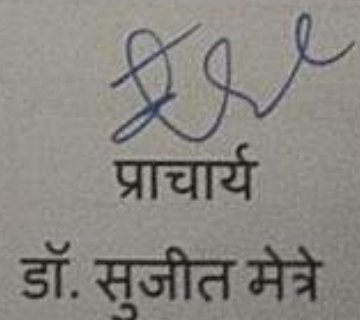 प्राचार्य
डॉ. सुजीत मेत्रे